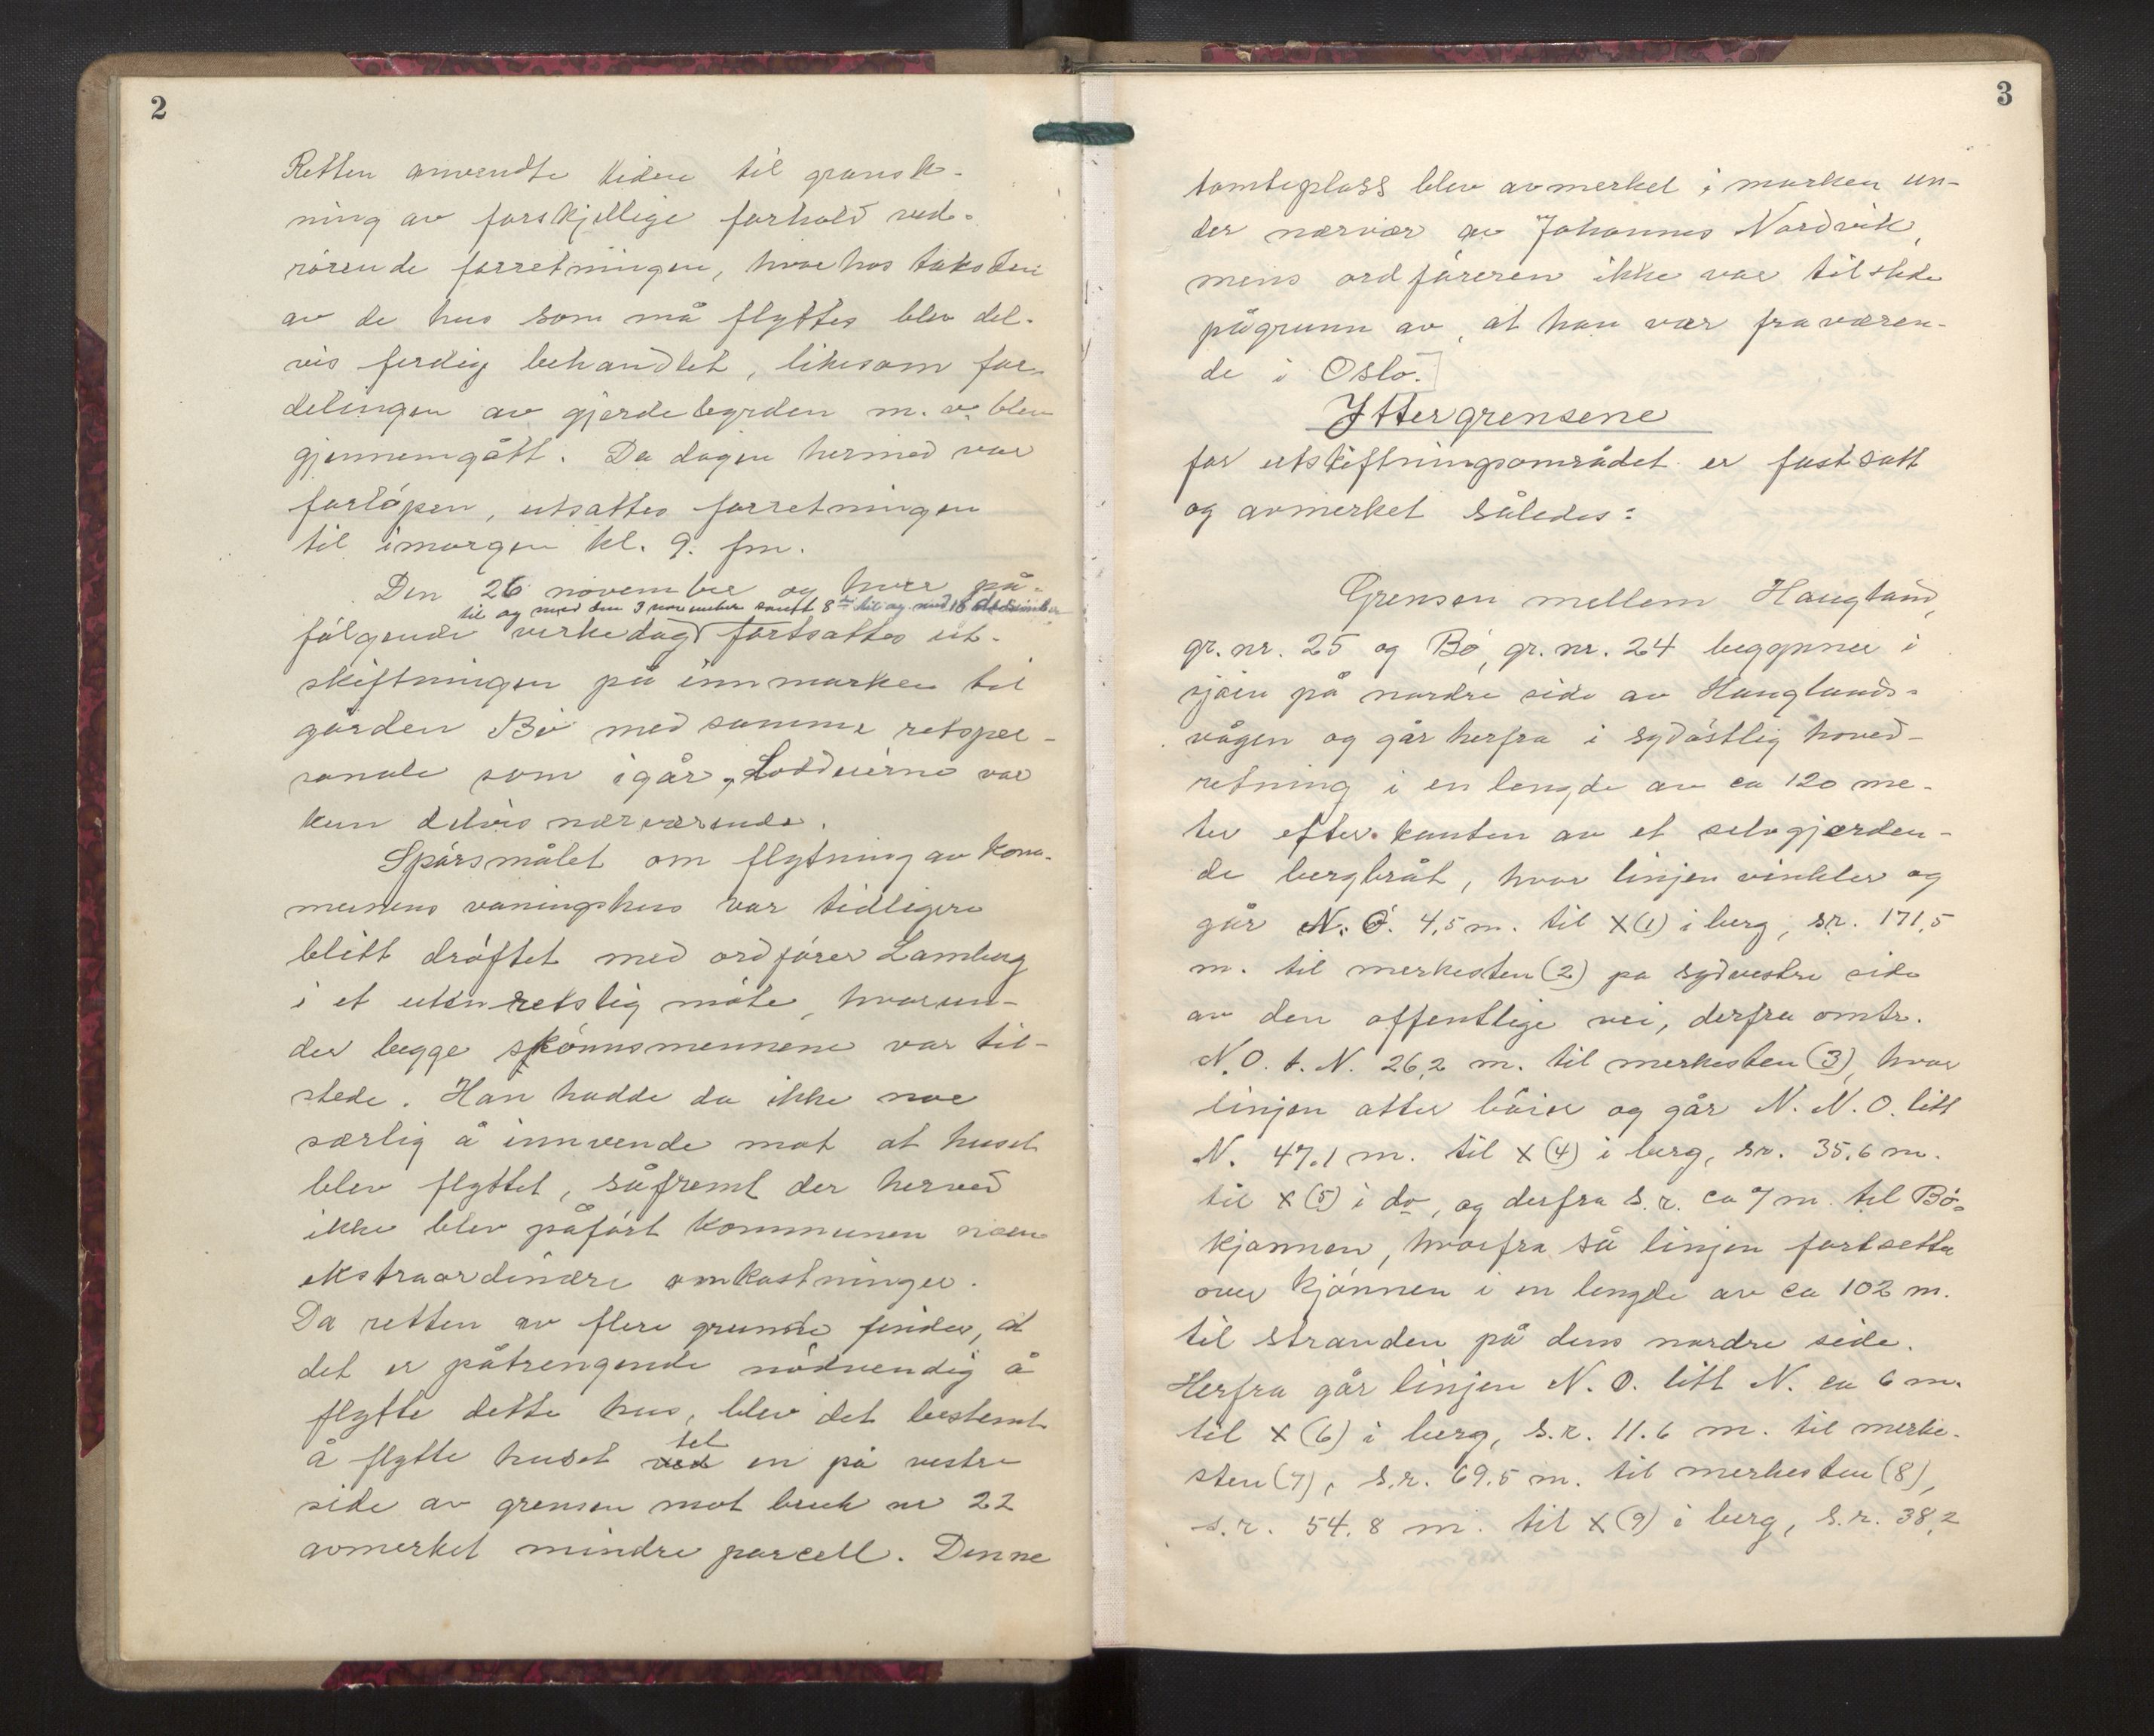 2
Retten anvendte tiden til gransk-
ning av forskjellige forhold ved-
rörende forretningen, hvorhos taksten
av de hus som må flyttes blev del-
vis ferdig behandlet, likesom for-
delingen av gjerdebyrden m. v. blev
gjennemgått. Da dagen hermed var
forlöpen, utsattes forretningen
til imorgen kl. 9. fm.
Den 26 november og hver på-
til og med den 3 november samt 8de til og med 18 desember
fölgende virkedag fortsattes ut-
skiftningen på innmarken til
gården Bö med samme retsper-
sonale som igår, Loddeierne var
kun delvis nærværende.
Spörsmålet om flytning av kom-
munens våningshus var tidligere
blitt dröftet med ordförer Lamberg
i et utenretslig möte, hvorun-
der begge skönnsmennene var til-
stede. Han hadde da ikke noe
særlig å innvende mot at huset
blev flyttet, såfremt der herved
ikke blev påfört kommunen noen
ekstraordinære omkostninger.
Da retten av flere grunde finder, at
det er påtrengende nödvendig å
flytte dette hus, blev det bestemt
til
å flytte huset ved en på vestre
side av grensen mot bruk nr 22
avmerket mindre parcell. Denne
3
tomteplass blev avmerket i marken un-
der nærvær av Johannes Nordvik,
mens ordföreren ikke var tilstede
pågrunn av, at han var fraværen-
de i Oslo.
Yttergrensene
for utskiftningsområdet er fastsatt
og avmerket således:
Grensen mellem Haugland,
gr. nr. 25 og Bö, gr. nr. 24 begynner i
sjöen på nordre side av Hauglands-
vågen og går herfra i sydöstlig hoved-
retning i en lengde av ca 120 me-
ter efter kanten av et selvgjerden-
de bergbråt, hvor linjen vinkler og
går N. Ö. 4,5 m. til X(1) i berg, s.r. 171,5
m. til merkesten (2) pa sydvestre side
av den offentlige vei, derfra omtr.
N.O. t. N. 26,2 m. til merkesten (3), hvor
linjen atter böier og går N. N. O. litt
N. 47.1 m. til X (4) i berg, s.r. 35,6 m.
til X (5) i do, og derfra s. r. ca 7 m. til Bö-
kjønnen, hvorfra så linjen fortsetter
over kjönnen i en lengde av ca 102 m.
til stranden på dens nordre side.
Herfra går linjen N. O. litt N. ca 6 m.
til X (6) i berg, s.r. 11.6 m. til merke-
sten (7), s.r. 69.5 m. til merkesten (8),
s.r. 54.8 m. til X (9) i berg, s.r. 38,2